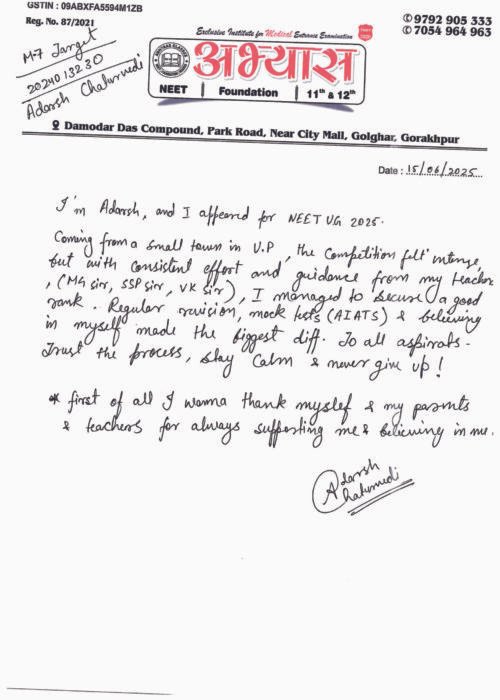 GSTIN : 09ABXFA5594M1ZB
Reg. No. 87/2021
M-7 Target
2024013230
Adarsh Chaturvedi
Exclusive Institute for Medical Entrance Examination
9792 905 333
7054 964 963
अभ्यास
NEET | Foundation | 11th & 12th
Damodar Das Compound, Park Road, Near City Mall, Golghar, Gorakhpur
Date : 15/06/2025
I'm Adarsh, and I appeared for NEET UG 2025.
Coming from a small town in U.P, the Competition felt intense,
but with consistent effort and guidance from my teachers
, (MG sir, SSP sir, VK sir), I managed to secure a good
rank. Regular revision, mock tests (AIATS) & believing
in myself made the biggest diff. To all aspirants-
Trust the process, stay Calm & never give up!
* first of all I wanna thank myslef & my parents
& teachers for always supporting me & believing in me.
Adarsh
Chaturvedi